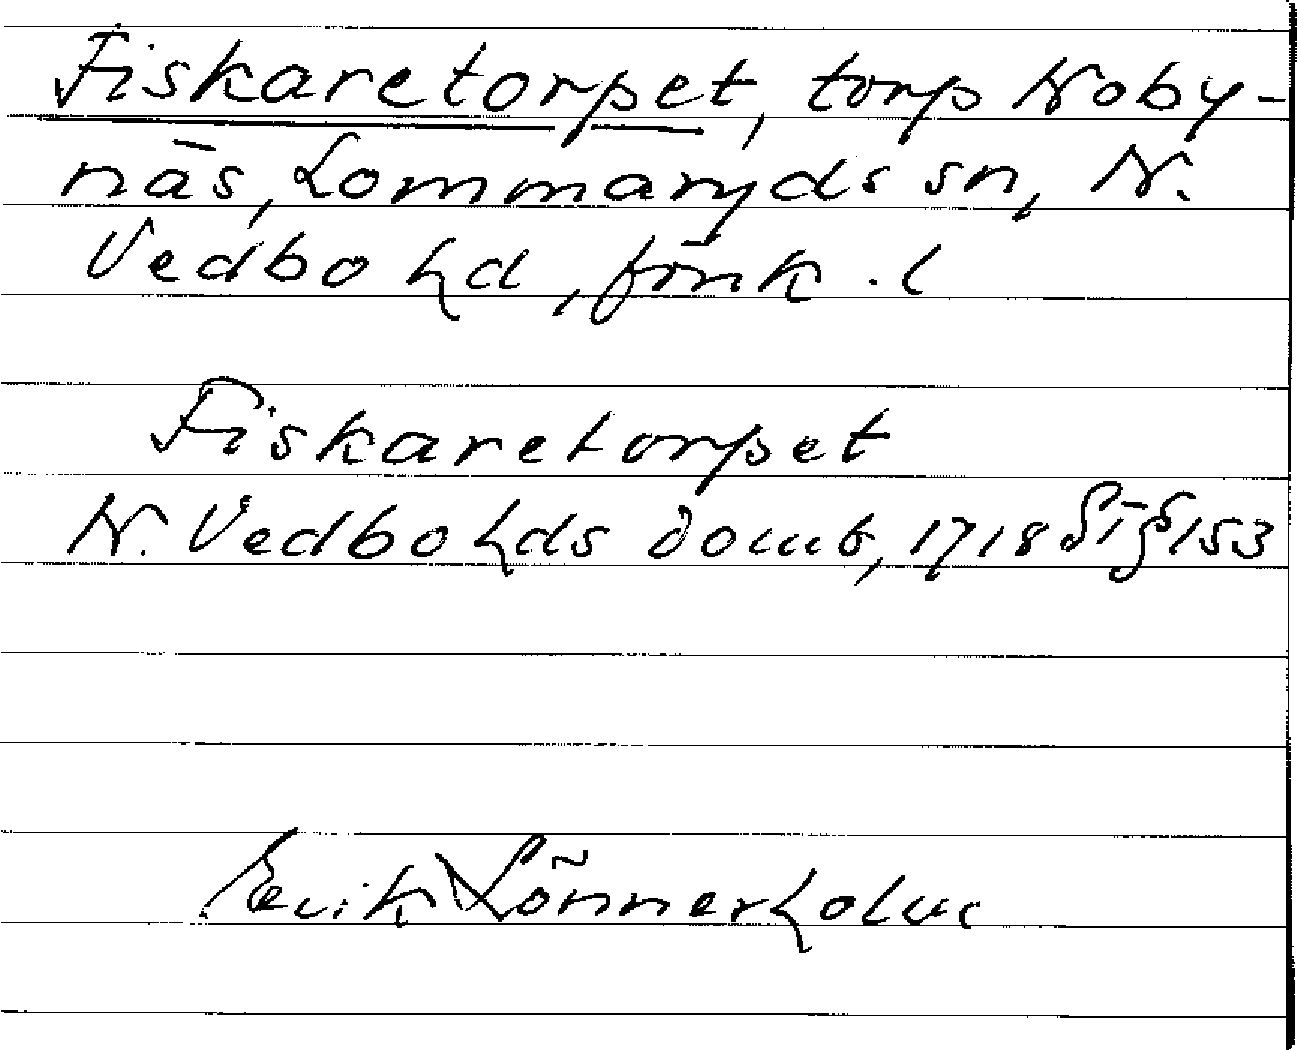 Fiskaretorpet, torp Noby-
näs, Lommaryds sn, N.
Vedbo hd, Jönk. l
Fiskaretorpet
N. Vedbo hds domb, 1718 § 153
Erik Lönnerholm